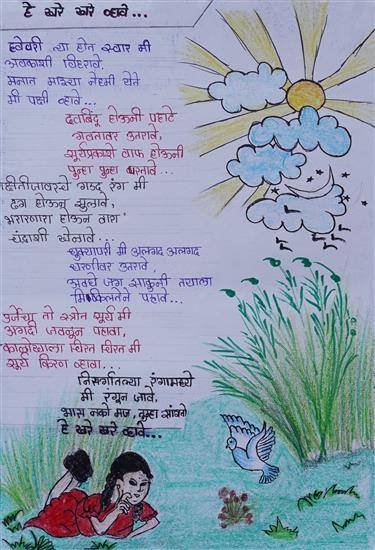 हे खरे खरे व्हावे...
हवेवरी त्या होत स्वार मी
अवकाशी विहरावे,
मनात माझ्या नेहमी येते
मी पक्षी व्हावे...
दवबिंदू होऊनी पहाटे
गवतावर उतरावे,
सूर्यप्रकाशे वाफ होऊनी
पुन्हा पुन्हा परतावे...
गडद रंग मी
ढग होऊन झुलावे,
भरारणारा होऊन वारा
चंद्राशी खेलावे..
धुक्यापरी मी अलगद अलगद
धरणीवर उतरावे,
अवघे जग झाकुनी तयाला
पहावे...
तो स्त्रोत सूर्य मी
अगदी जवळून पहावा,
काळोखाला चिरत चिरत मी
सूर्य किरण व्हावा...
निसर्गातल्या रंगामध्ये
मी रंगून जावे,
भास नको मज, तुम्हा सांगते
हे खरे खरे व्हावे...